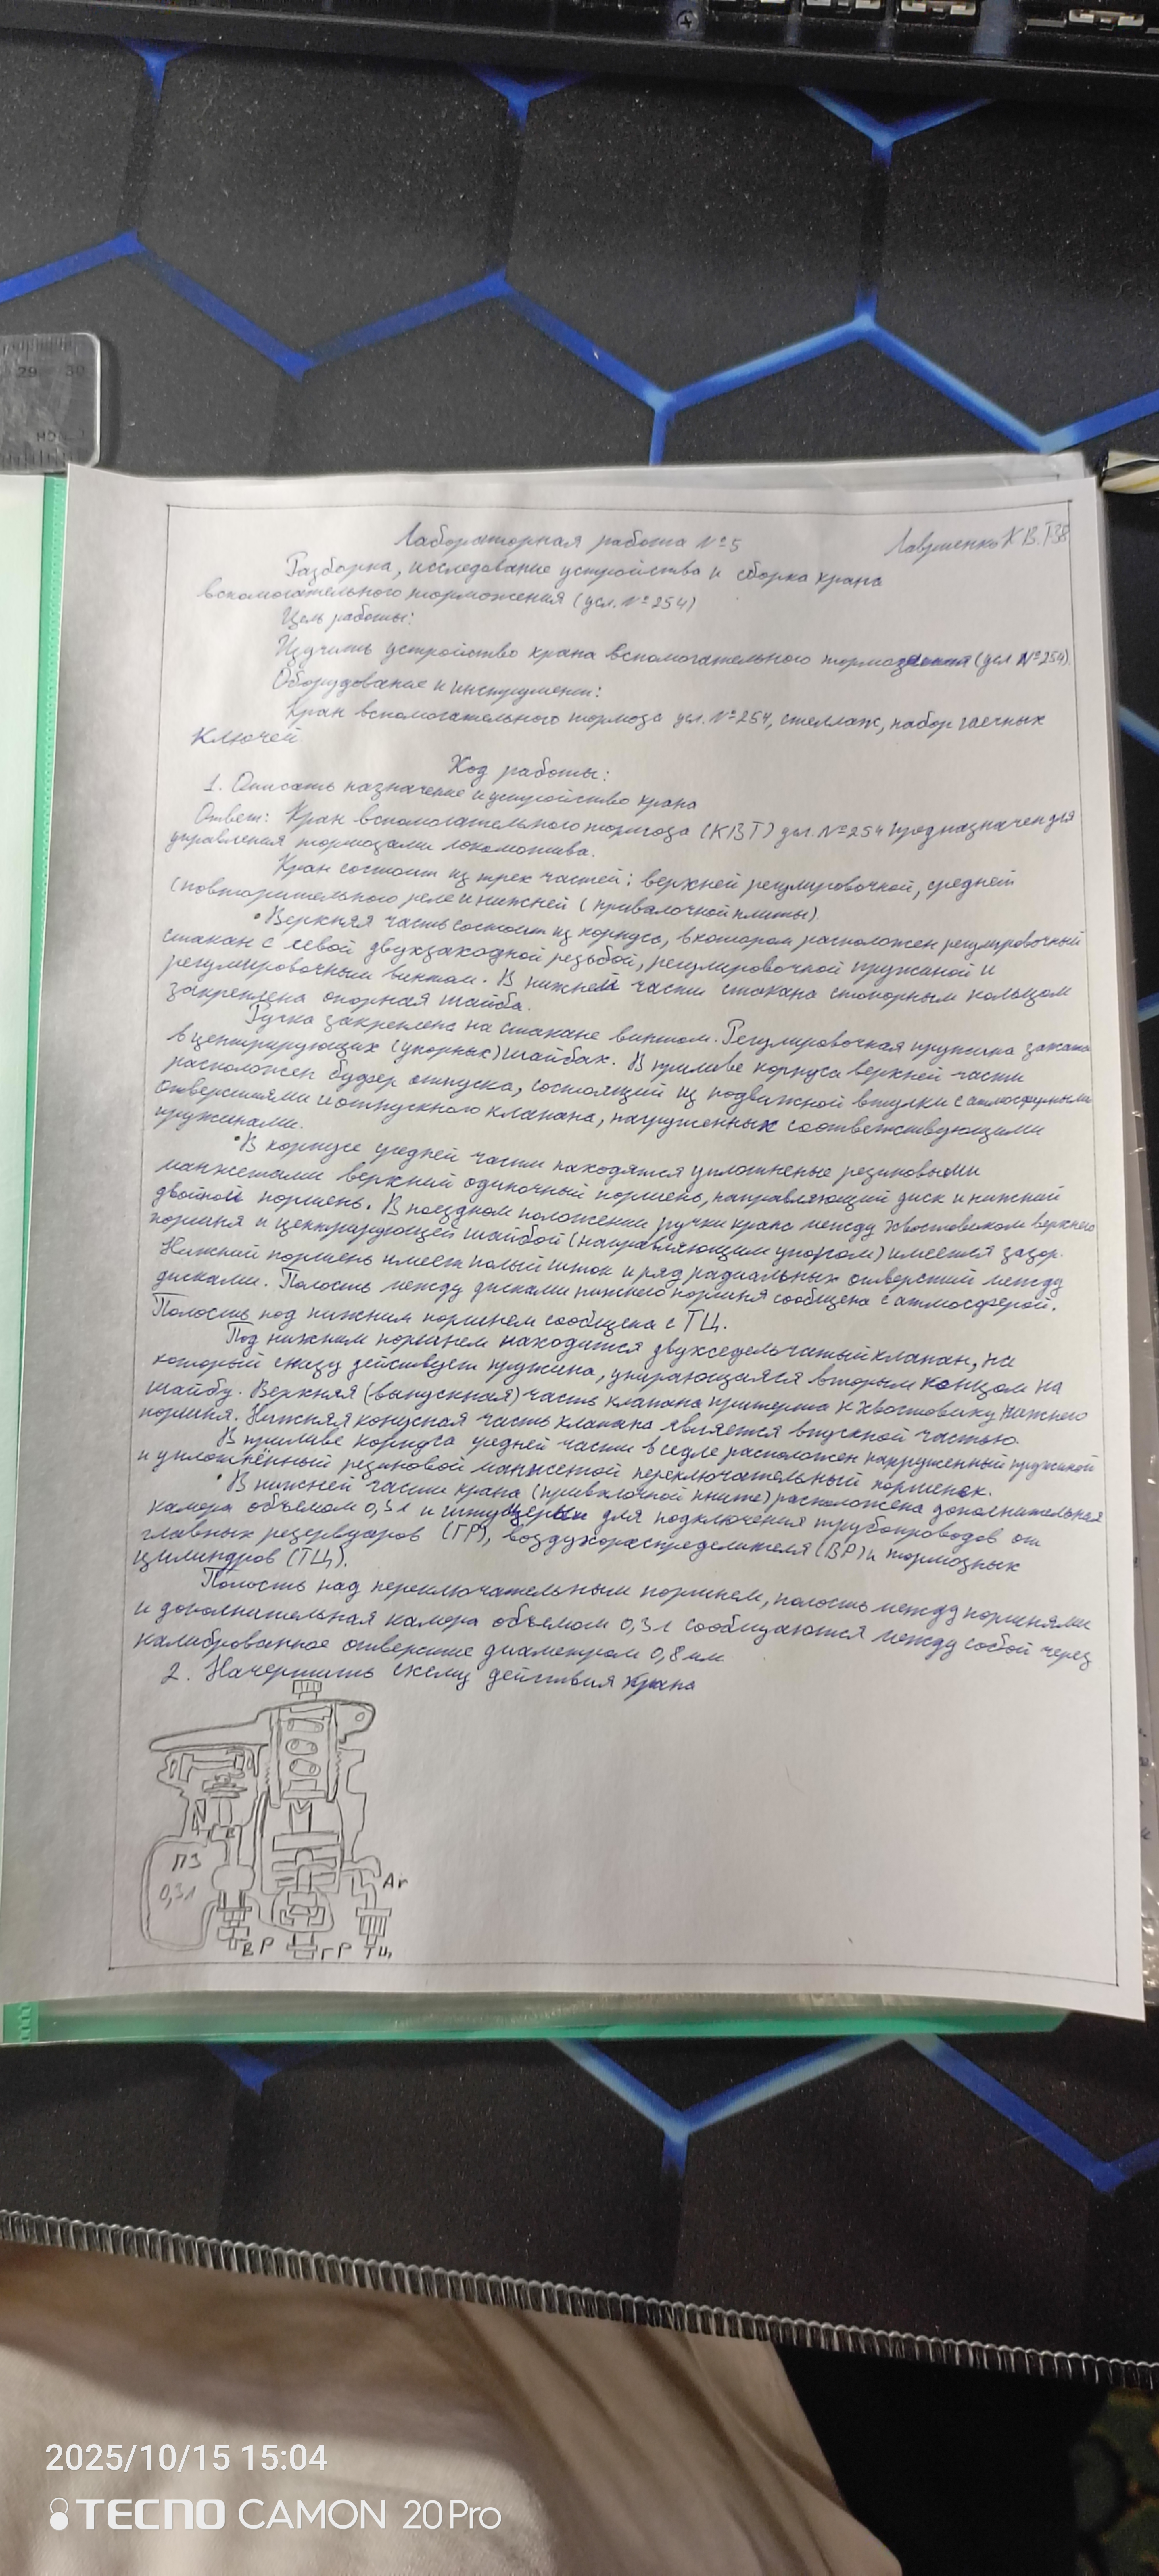 29 30
Лабораторная работа №5
Лавриненко К.В. Т38
Разборка, исследование устройства и сборка крана
вспомогательного торможения (усл. №254)
Цель работы:
Изучить устройство крана вспомогательного торможения (усл №254).
Оборудование и инструмент:
Кран вспомогательного тормоза усл. №254, стеллаж, набор гаечных
ключей
Ход работы:
1. Описать назначение и устройство крана
Ответ: Кран вспомогательного тормоза (КВТ) усл. №254 предназначен для
управления тормозами локомотива.
Кран состоит из трех частей: верхней регулировочной, средней
(повторительного реле и нижней (привалочной плиты).
• Верхняя часть состоит из корпуса, в котором расположен регулировочный
стакан с левой двухзаходной резьбой, регулировочной пружиной и
регулировочным винтом. В нижней части стакана стопорным кольцом
закреплена опорная шайба.
Ручка закреплена на стакане винтом. Регулировочная пружина зажата
в центрирующих (упорных) шайбах. В приливе корпуса верхней части
расположен буфер отпуска, состоящий из подвижной втулки с атмосферными
отверстиями и отпускного клапана, нагруженных соответствующими
пружинами.
• В корпусе средней части находятся уплотненые резиновыми
манжетами верхний одиночный поршень, направляющий диск и нижний
двойной поршень. В поездном положении ручки крана между хвостовиком верхнего
поршня и центрирующей шайбой (направляющим упором) имеется зазор.
Нижний поршень имеет полый шток и ряд радиальных отверстий между
дисками. Полость между дисками нижнего поршня сообщена с атмосферой.
Полость под нижним поршнем сообщена с ТЦ.
Под нижним поршнем находится двухседельчатый клапан, на
который снизу действует пружина, упирающаяся вторым концом на
шайбу. Верхняя (выпускная) часть клапана притерта к хвостовику нижнего
поршня. Нижняя конусная часть клапана является впускной частью.
В приливе корпуса средней части в седле расположен нагруженный пружиной
и уплотнённый резиновой манжетой переключательный поршенек.
• В нижней части крана (привалочной плите) расположена дополнительная
камера объемом 0,3 л и штуцеры для подключения трубопроводов от
главных резервуаров (ГР), воздухораспределителя (ВР) и тормозных
цилиндров (ТЦ).
Полость над переключательным поршнем, полость между поршнями
и дополнительная камера объемом 0,3 л сообщаются между собой через
калиброванное отверстие диаметром 0,8 мм
2. Начертить схему действия крана
ПЗ
0,3л
Ат
ВР ГР ТЦ
2025/10/15 15:04
TECNO CAMON 20 Pro